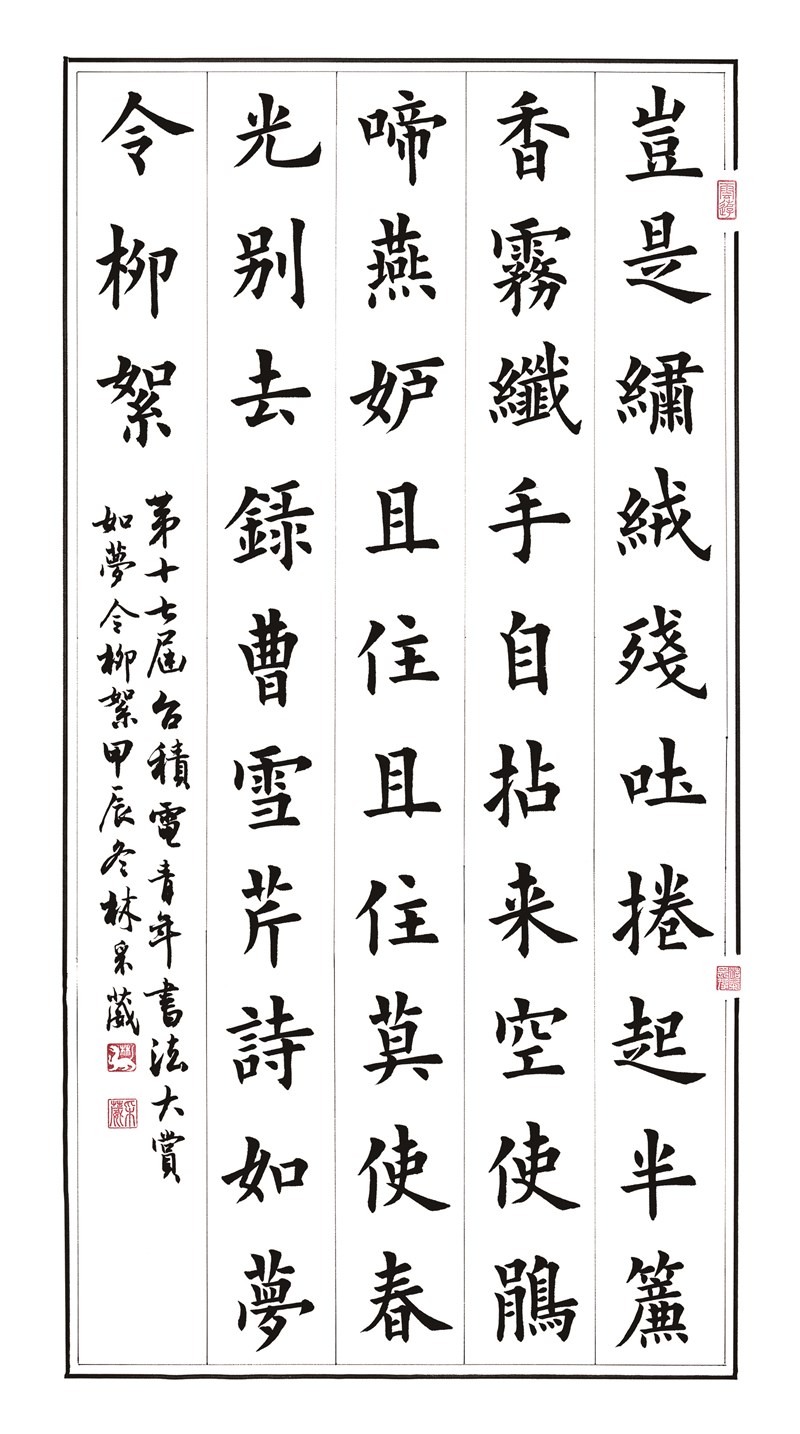 豈是繡絨殘吐捲起半簾
香霧纖手自拈来空使鵑
啼燕妒且住且住莫使春
光别去錄曹雪芹詩如夢
令柳絮
第十七屆台積電青年書法大賞
如夢令柳絮甲辰冬林采葳